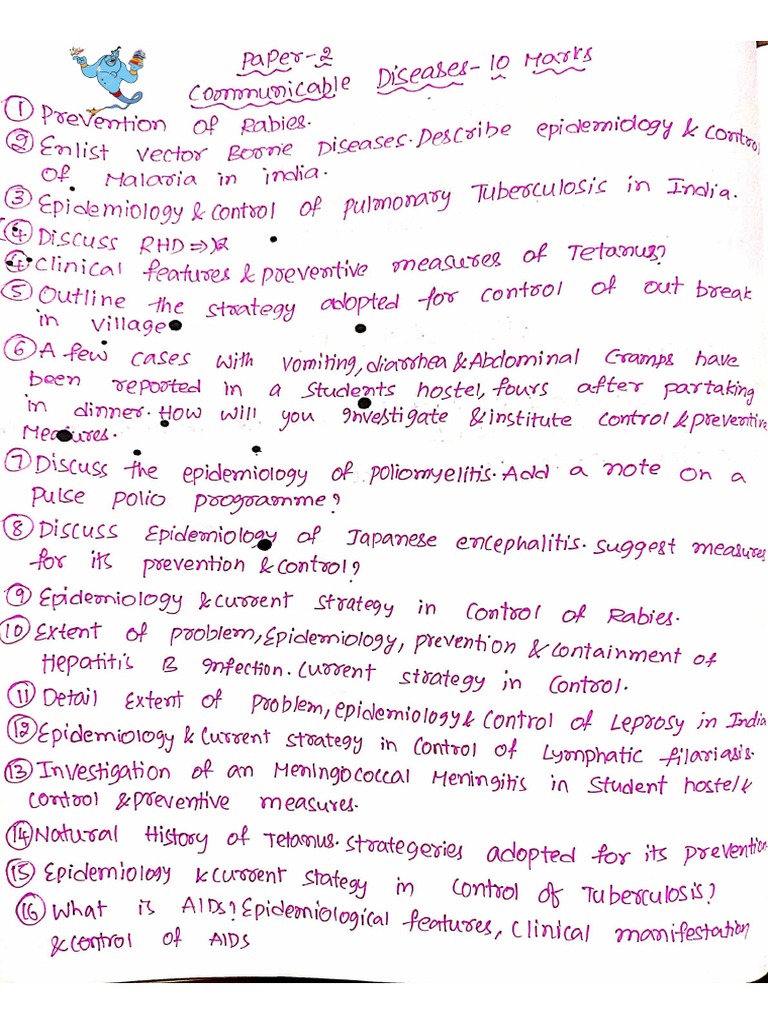 Paper-2
Communicable Diseases-10 Marks
① Prevention of Rabies.
② Enlist Vector Borne Diseases. Describe epidemiology & control
of Malaria in india.
③ Epidemiology & control of pulmonary Tuberculosis in India.
④ Discuss RHD ⇒
④ Clinical features & preventive measures of Tetanus?
⑤ Outline the strategy adopted for control of out break
in village
⑥ A few cases with vomiting, diarrhea & Abdominal Cramps have
been reported in a students hostel, fours after partaking
in dinner. How will you investigate & institute control & preventive
Measures.
⑦ Discuss the epidemiology of poliomyelitis. Add a note on a
Pulse polio programme?
⑧ Discuss Epidemiology of Japanese encephalitis. suggest measures
for its prevention & control?
⑨ Epidemiology & current strategy in control of Rabies.
⑩ Extent of problem, Epidemiology, prevention & containment of
Hepatitis B infection. Current strategy in control.
⑪ Detail Extent of problem, epidemiology & control of Leprosy in India
⑫ Epidemiology & current strategy in control of Lymphatic filariasis.
⑬ Investigation of an Meningococcal Meningitis in student hostel &
control & preventive measures.
⑭ Natural History of Tetanus. strategeries adopted for its prevention
⑮ Epidemiology & current stategy in control of Tuberculosis?
⑯ What is AIDS? Epidemiological features, Clinical manifestation
& control of AIDS